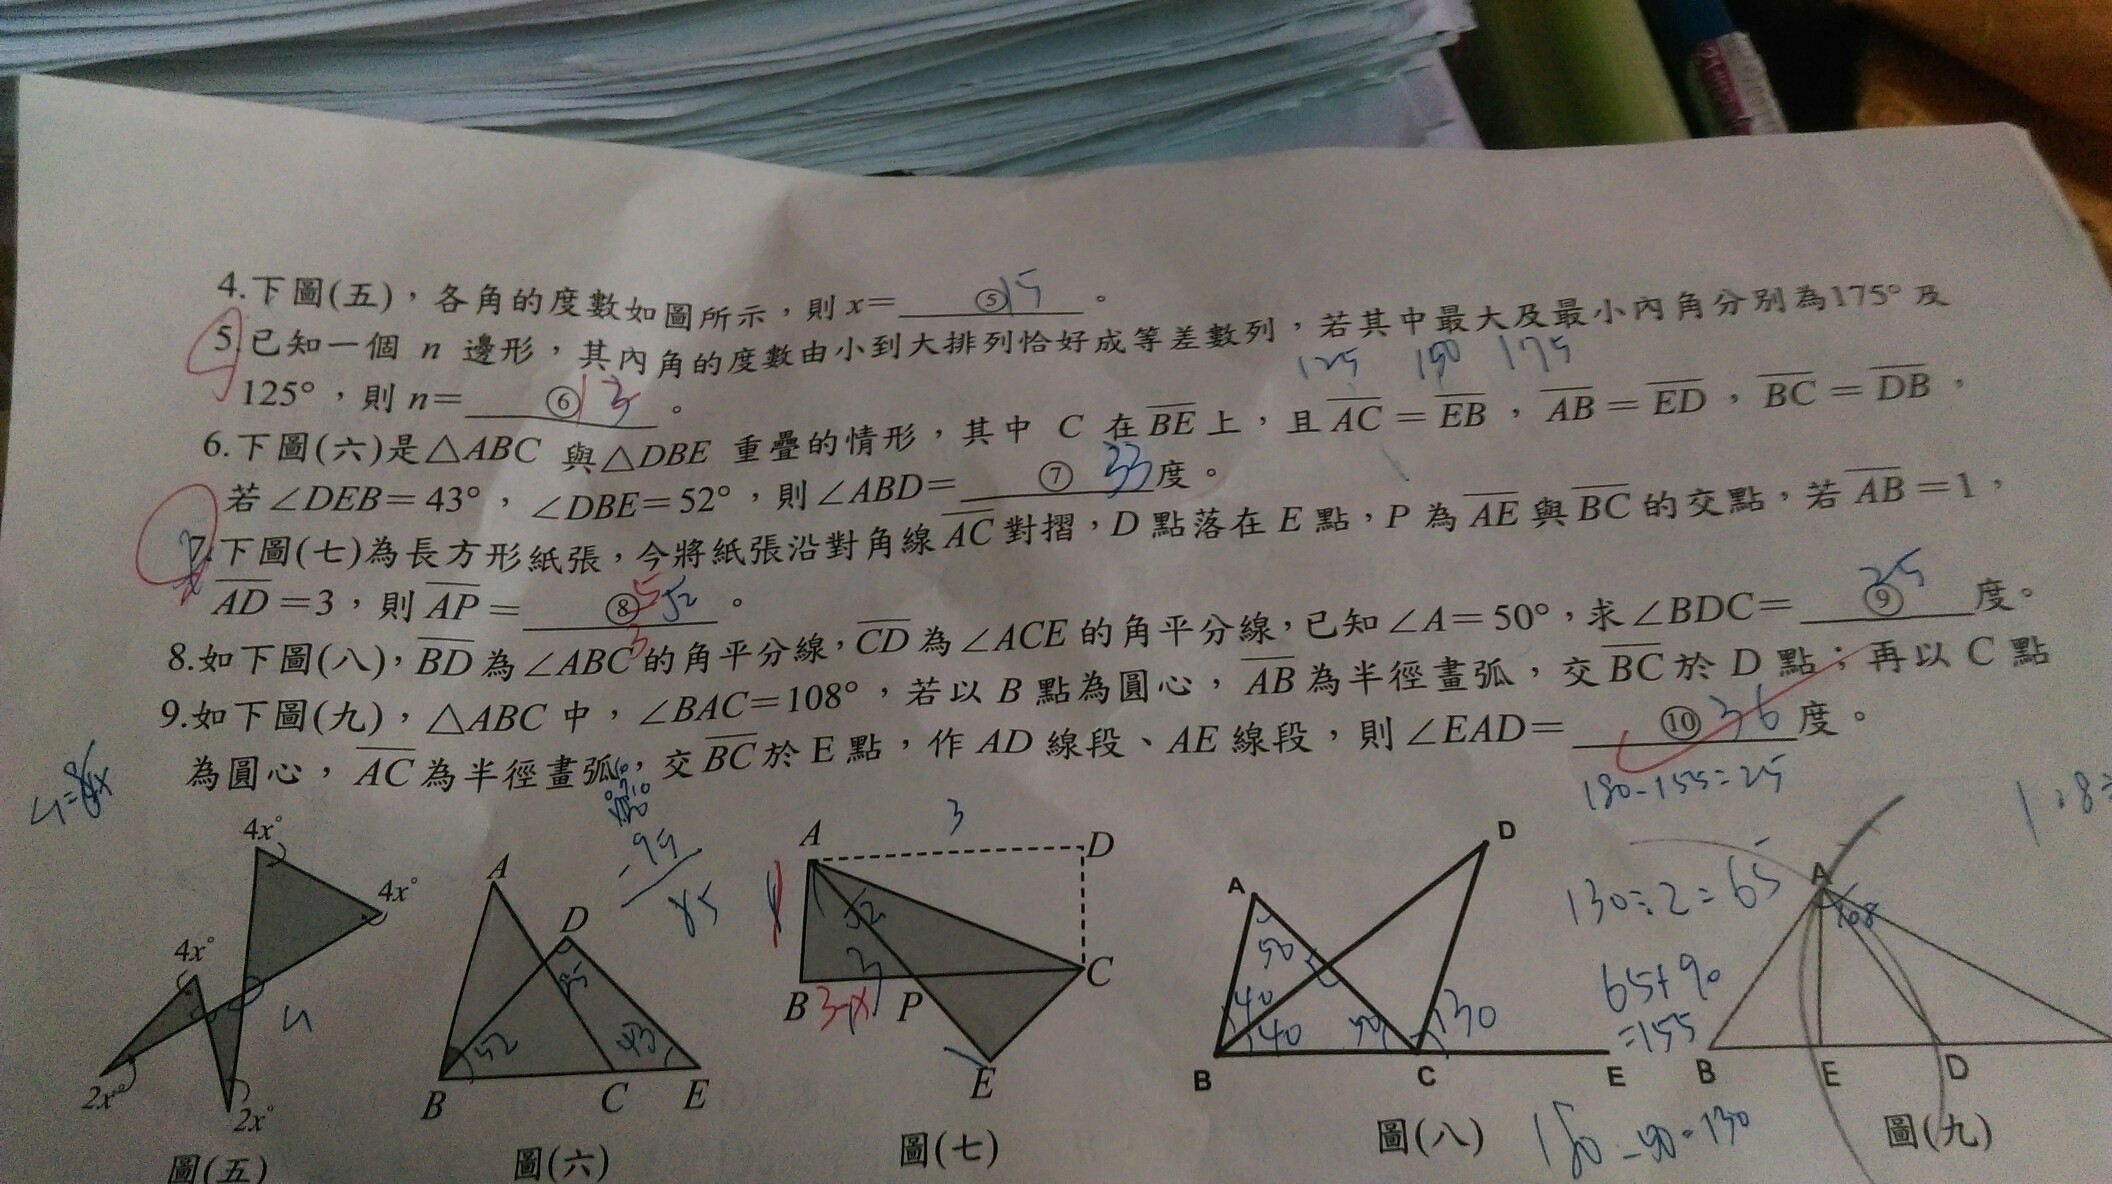 4.下圖(五)，各角的度數如圖所示，則x=⑤15。
5.已知一個 n 邊形，其內角的度數由小到大排列恰好成等差數列，若其中最大及最小內角分別為175°及
125 150 175
125°，則 n=⑥13。
6.下圖(六)是△ABC 與△DBE 重疊的情形，其中 C 在BE上，且AC=EB，AB=ED，BC=DB，
若∠DEB=43°，∠DBE=52°，則∠ABD=⑦33度。
7.下圖(七)為長方形紙張，今將紙張沿對角線AC對摺，D點落在E點，P為AE與BC的交點，若AB=1，
AD=3，則AP=⑧5/3 √2。
8.如下圖(八)，BD為∠ABC的角平分線，CD為∠ACE的角平分線，已知∠A=50°，求∠BDC=⑨25度。
9.如下圖(九)，△ABC中，∠BAC=108°，若以B點為圓心，AB為半徑畫弧，交BC於D點；再以C點
為圓心，AC為半徑畫弧，交BC於E點，作AD線段、AE線段，則∠EAD=⑩36度。
180-155=25
-95
85
4x°
4x°
4x°
2x°
2x°
4
圖(五)
A
D
52
43
B
C
E
圖(六)
3
A
D
√2
3
B
3-x
P
C
E
圖(七)
A
D
50
40
40
50
130
B
C
E
圖(八)
130÷2=65
65+90
=155
180-50=130
A
108
B
E
D
圖(九)